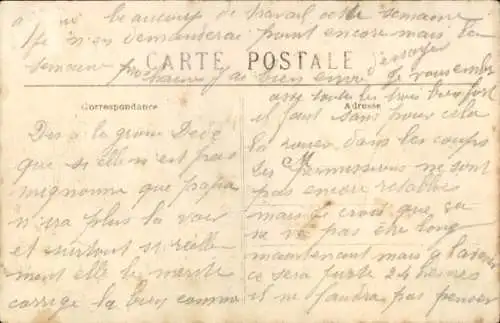 a    beaucoup de travail cette semaine
je n'en demanderai point encore mais la
CARTE POSTALE
semaine prochaine j'ai bien envie d'essayer
Je vous embrasse toutes les trois bien fort
Correspondance
Dis à la grosse Dédé
que si elle n'est pas
mignonne que papa
n'ira plus la voir
et surtout si réelle
ment elle le mérite
corrige la bien comme
Adresse
il faut sans pour cela
la rouer dans les coups
Les Permissions ne sont
pas encore retablies
mais je crois que ça
ne va pas être long
maintenant mais a l'avenir
ce sera juste 24 heures
il ne faudra pas penser